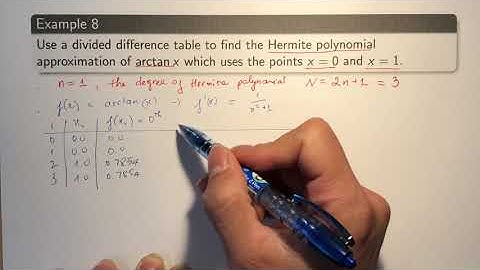 Example 8
Use a divided difference table to find the Hermite polynomial
approximation of arctan x which uses the points x = 0 and x = 1.
n=1, the degree of Hermite polynomial N = 2n+1 = 3
f(x) = arctan(x) → f'(x) = 1/(x²+1)
i xᵢ f(xᵢ) = 0th
0 0.0 0.0
1 0.0 0.0
2 1.0 0.7854
3 1.0 0.7854